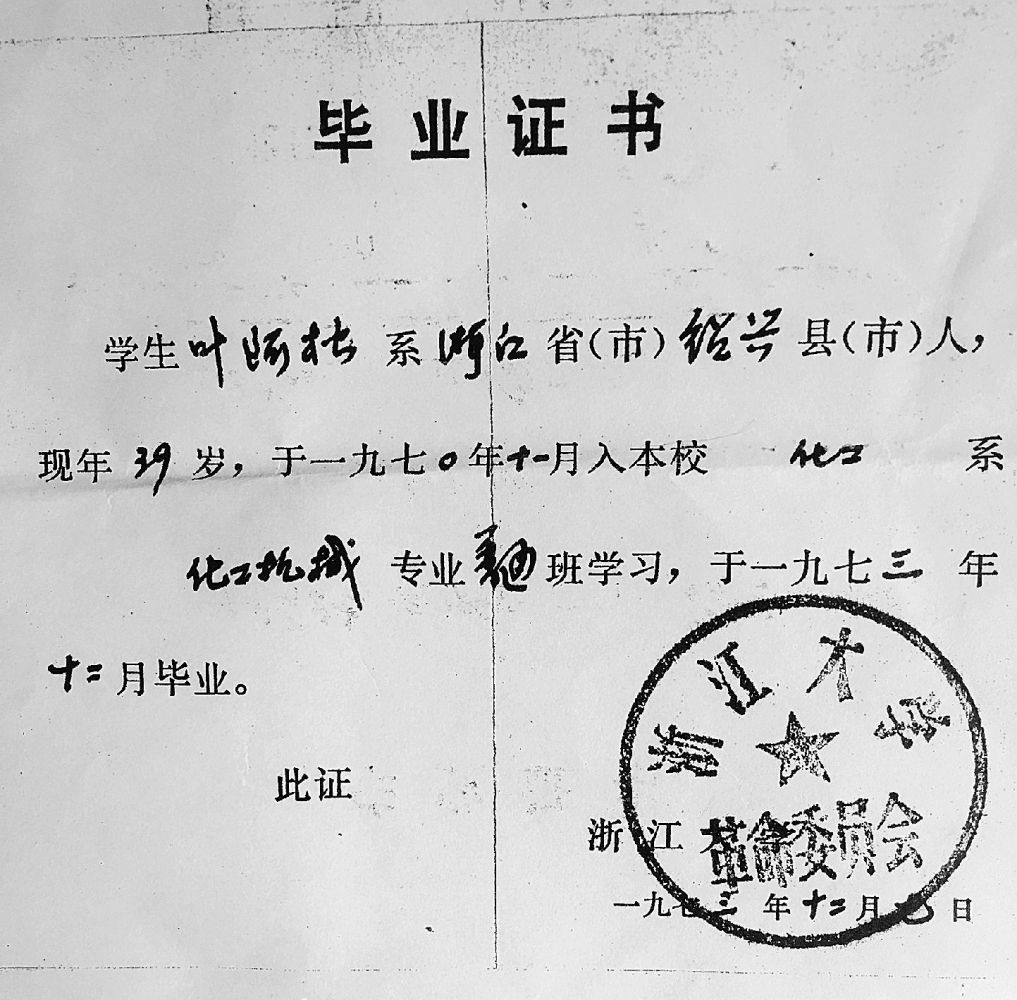 毕业证书
学生 叶 系 浙江 省(市) 绍兴 县(市)人,
现年 39 岁, 于一九七〇年十一月入本校 化工 系
化工机械 专业 班学习, 于一九七三 年
十二月毕业。
此证
浙江大
浙江大学
革命委员会
一九七三年十二月 日